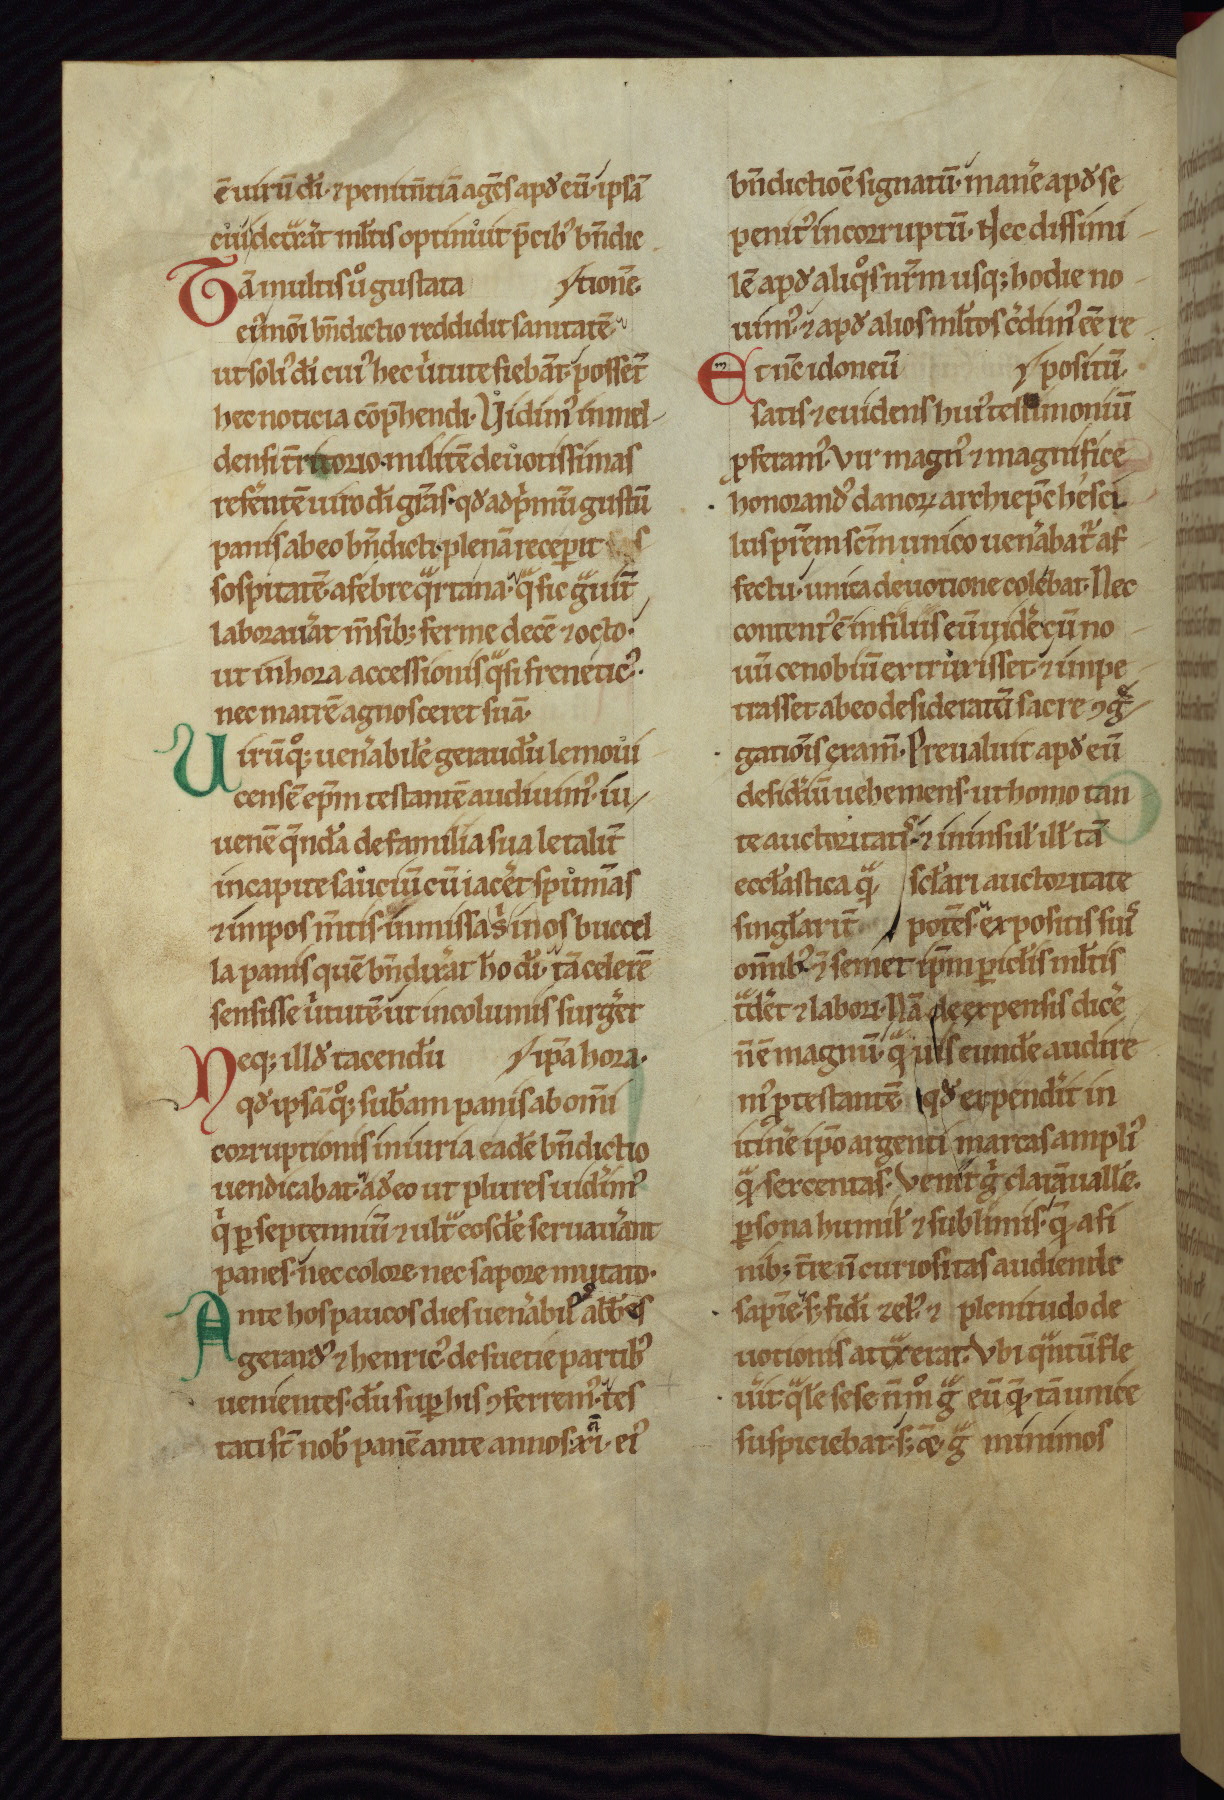 ē uirū dī· ⁊ penitn̄tiā agēs apđ eū· ipsā
eiꝰ detraͣt ml̄tis optinuit p̄cibꝰ bn̄dic
Tā multis uͦ gustata /tionē·
eiꝰmōi bn̄dictio reddidit sanitatē
ut soliꝰ dī cuiꝰ hec uͥtute fiebānt· possēt
hec noticia cōp̄hendi· Vidimꝰ in mel-
densi t̄ritorio· militē deuotissimas
referntē uiro dī grās· qđ ad p̄mū gustū
panis ab eo bn̄dicti· plenā recepit
sospitatē· a febre qͣrtana· qͣ sic gͣuit̄
laborauāt m̄sib; ferme decē ⁊ octo·
ut in hora accessionis qͣsi freneticꝰ·
nec matrē agnosceret suā·
Virū qͦq; uenābilē geraudū lemoui
censē ep̄m testantē audiuimꝰ· iu/
uenē q̄ndā de familia sua letalit̄
in capite sauciū cū iacēt spumās
⁊ impos m̄tis· in missas in os buccel
la panis quē bn̄dixāt ho dī· tā celerē
sensisse uͥtutē ut incolumis surgēt
Neq; illđ tacendū /ipā hora·
qđ ipsā qͦq; subām panis ab omī
corruptionis iniuria eadē bn̄dictio
uendicabat· adeo ut plures uidimꝰ
qͥ ꝑ septenniū ⁊ ultͣ eosdē seruauānt
panes· nec colore nec sapore mutato·
Ante hos paucos dies uenābil̄ abb̄es
gerardꝰ ⁊ henricꝰ de suetie partibꝰ
uenientes· dū suꝑ his ꝯferremꝰ· tes
tati st̄ nob̄ panē ante annos· xi· eiꝰ
bn̄dictiōe signatū· manē apđ se
penitꝰ incorruptū· Hec dissimi-
lē apđ aliqͦs nr̄m usq; hodie no-
uimꝰ· ⁊ apđ alios ml̄tos cͥdimꝰ eē re
Et nc̄ idoneū /positū·
satis ⁊ euidens huiꝰ testimoniū
ꝓferamꝰ· Vir magnꝰ ⁊ magnifice
honorandꝰ danoꝝ archiep̄c hesci
lus pr̄em scm̄ unico uenābat̄ af
fectu· unica deuotione colebat· Nec
contentꝰ ē in filiis eū uidē cū no-
uū cenobiū extruxisset· ⁊ impe-
trasset ab eo desideratū sacre ꝯgͤ/
gatiōis exam̄· Preualuit apđ eū
desidiū uehemens· ut homo tan
te auctoritatꝭ· ⁊ in insul̄ ill̄ tā
eccl̄astica qͣ sclari auctoritate
singlarit̄ potēs· expositis suiꝰ
om̄ibꝰ· ⁊ semet ip̄m ꝑiclis ml̄tis
tͣdēt ⁊ labori· Nā de expensis dicē
n̄ ē magnū· qͣuis eundē audie
nꝰ ꝓtestantē qđ expendīt in
itinē ipo argenti marcas ampliꝰ
qͣ sexcentas· Venit gͥ claꝛāuallē·
ꝑsona humil̄ ⁊ sublimis· q̄ a fi
nib; t̄re n̄ curiositas audiende
sapie· s; fidi zelꝰ ⁊ plenitudo de
uotionis attraxerat· Vbi qͣntū fle
uīt· qͣlē sese n̄m̊ gͣ eū qͣ tā unice
suspiciebat· s; ⁊ gͣ minimos